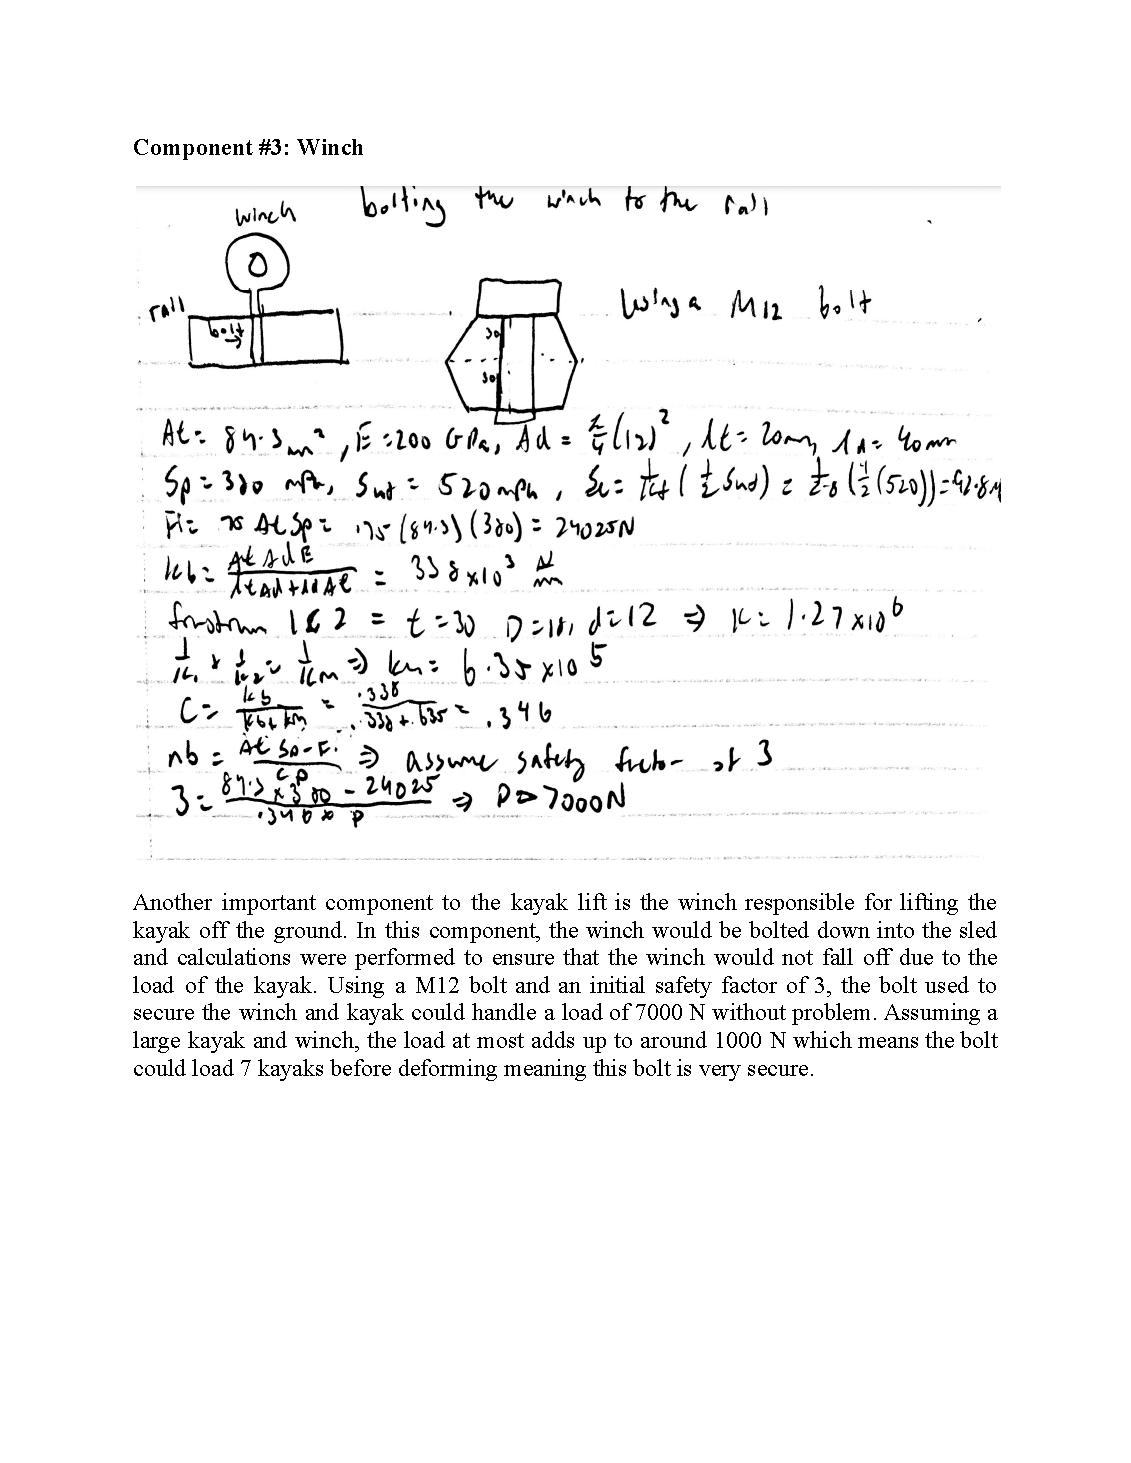 Component #3: Winch
winch bolting the winch to the rail
rail
bolt
30
30
Using a M12 bolt
At = 84.3 mm², E = 200 GPa, Ad = π/4 (12)², lt = 20mm, ld = 40mm
Sp = 380 MPa, Sut = 520 MPa, Se = (1/2 Sut) = (1/2 (520)) = 92.8 M
Fi = .75 At Sp = .75 (84.3) (380) = 24025N
kb = At Ad E / lt Ad + ld At = 338 x10³ N/mm
frustrum 1 & 2 = t = 30 D = 18, d = 12 ⇒ k = 1.27 x10⁶
1/k1 + 1/k2 = 1/km ⇒ km = 6.35 x10⁵
C = kb / kb + km = .338 / .338 + .635 = .346
nb = At Sp - Fi / CP ⇒ assume safety factor of 3
3 = 84.3 x 380 - 24025 / .346 x P ⇒ P = 7000N
Another important component to the kayak lift is the winch responsible for lifting the
kayak off the ground. In this component, the winch would be bolted down into the sled
and calculations were performed to ensure that the winch would not fall off due to the
load of the kayak. Using a M12 bolt and an initial safety factor of 3, the bolt used to
secure the winch and kayak could handle a load of 7000 N without problem. Assuming a
large kayak and winch, the load at most adds up to around 1000 N which means the bolt
could load 7 kayaks before deforming meaning this bolt is very secure.